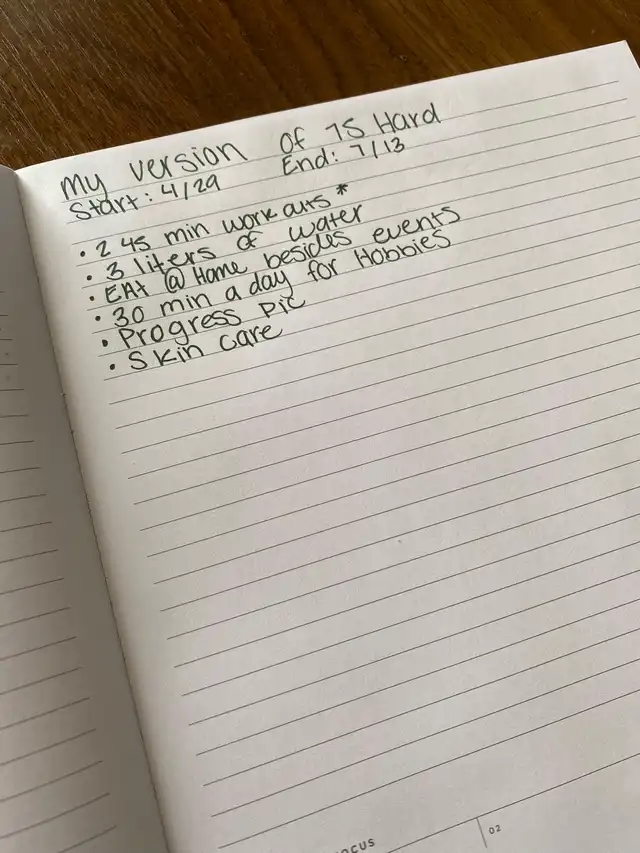 My version of 75 Hard
Start: 4/29 End: 7/13
• 2 45 min work outs *
• 3 liters of water
• EAt @ Home besides events
• 30 min a day for Hobbies
• Progress pic
• Skin care
OCUS
02